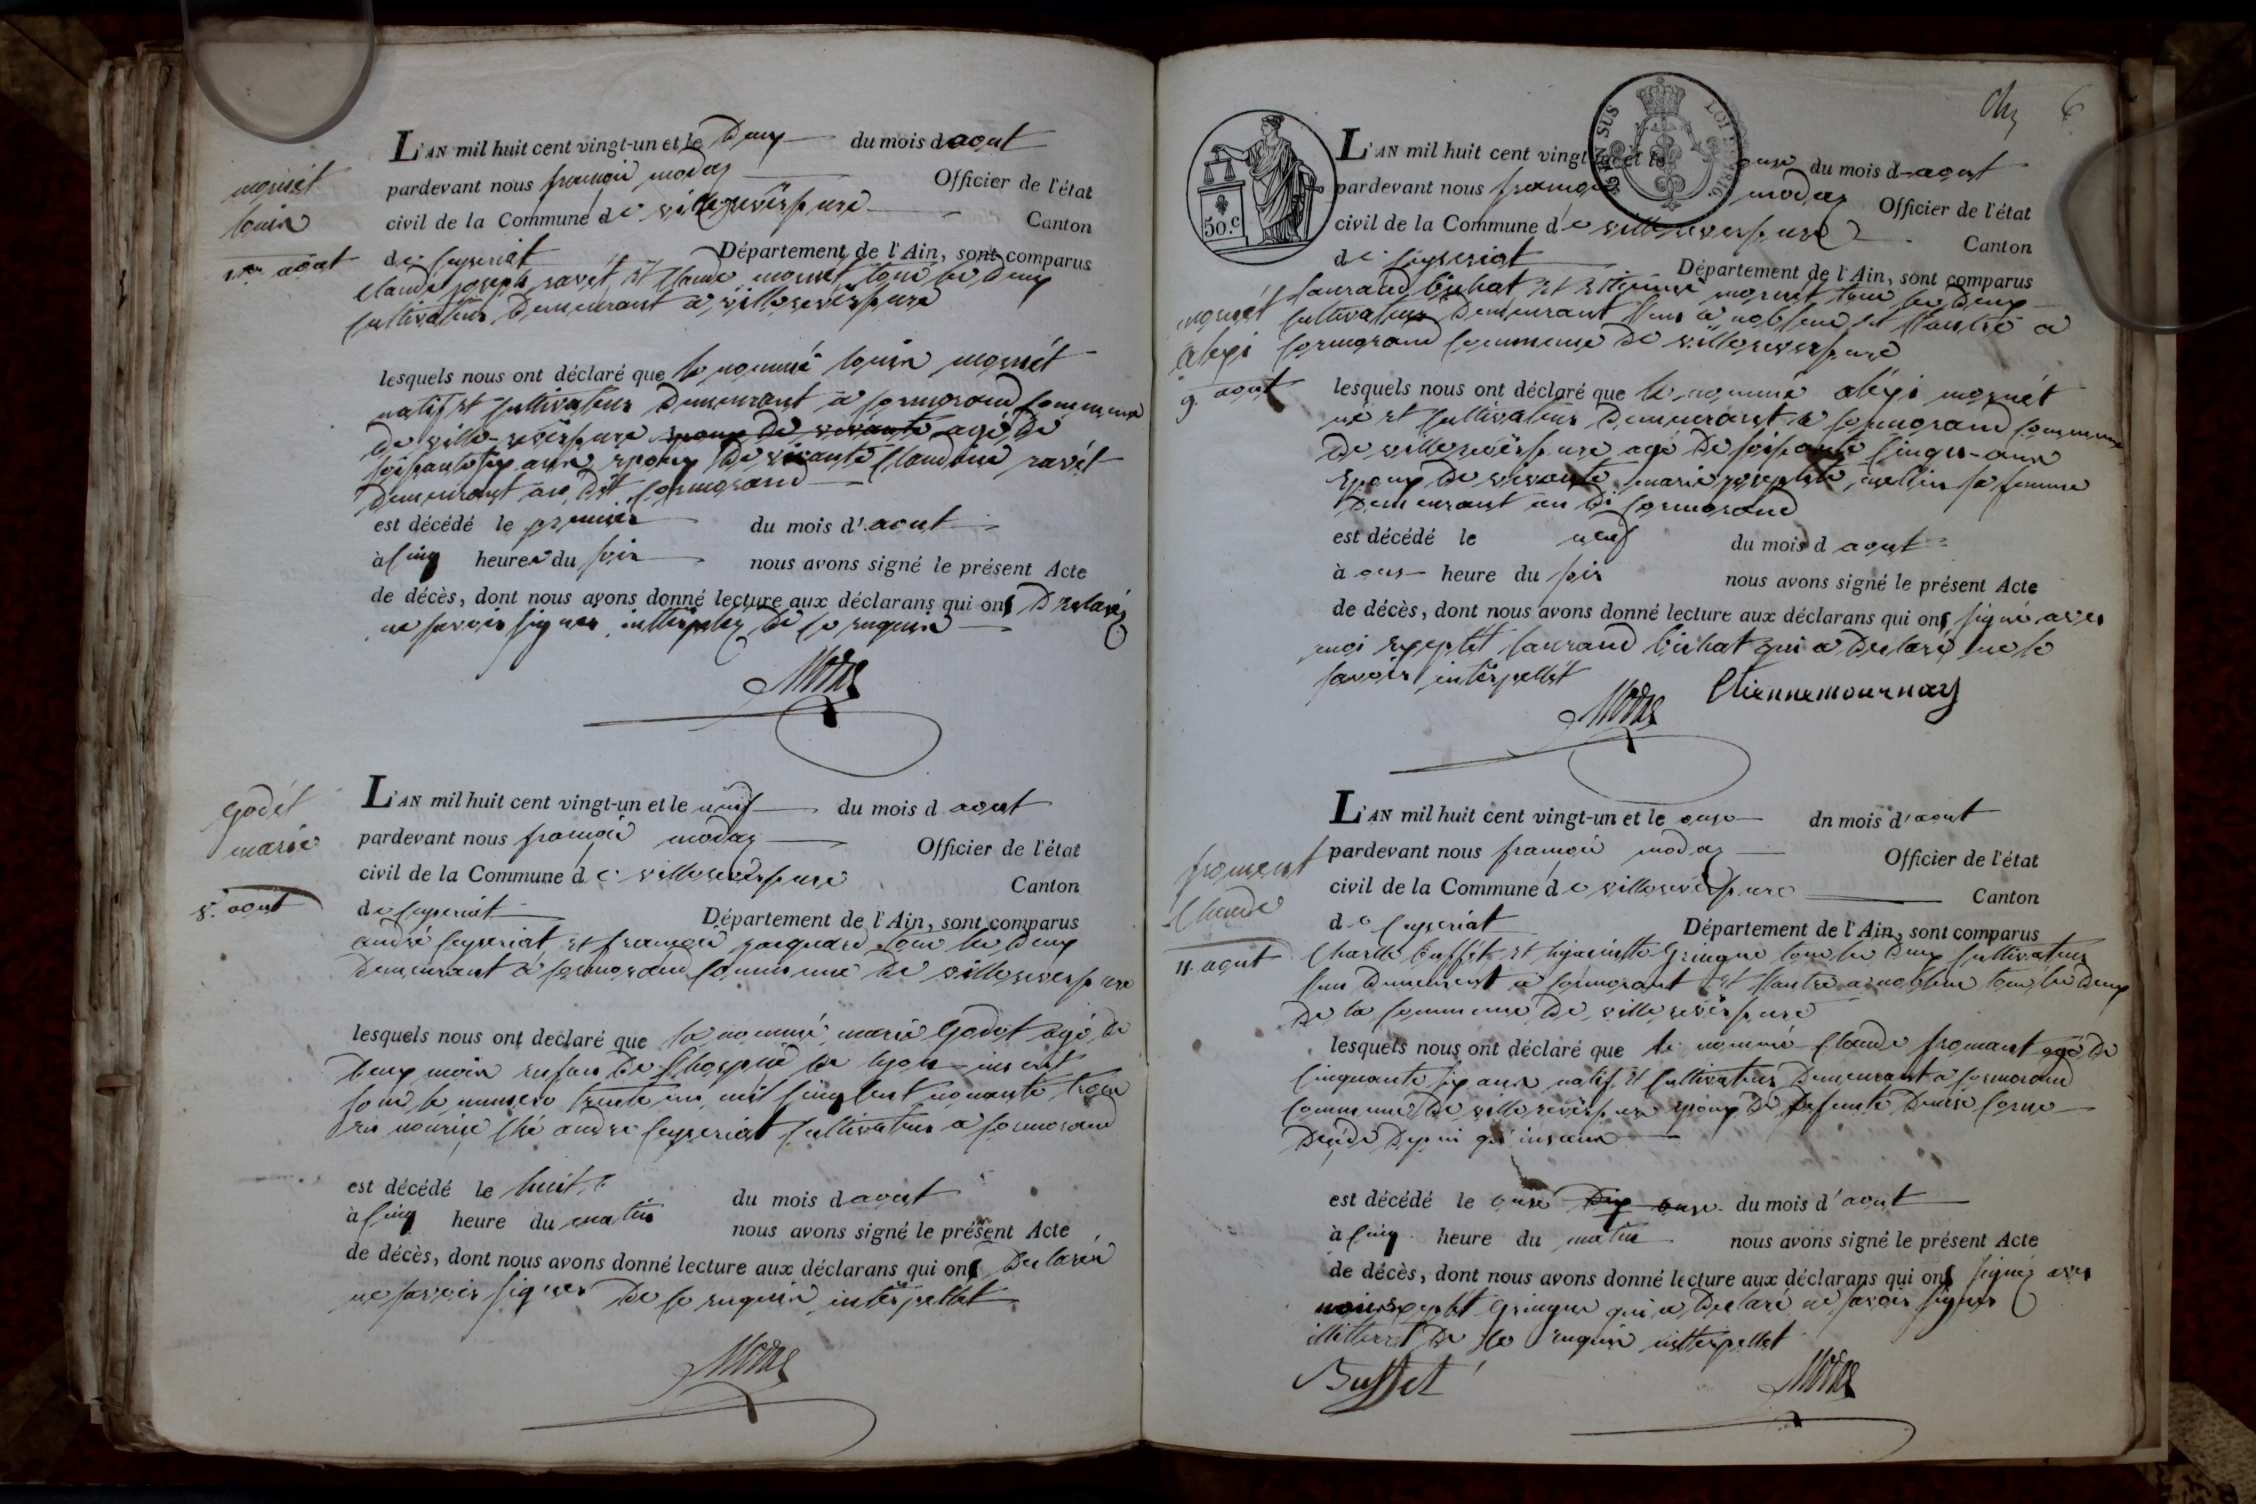 mornét
louis
1er août
L'AN mil huit cent vingt-un et le Deux du mois d aout
pardevant nous françois modas Officier de l'état
civil de la Commune de villereversure Canton
de Ceyseriat Département de l'Ain, sont comparus
Claude joseph ravét et Claude mornét tous les Deux
Cultivateurs Demeurant a villereversure
lesquels nous ont déclaré que le nommé louis mornét
natif et Cultivateur Demeurant a Cormorand Commune
de ville-reversure epoux de vivante agé de
soixante six ans epoux de vivante Claudine ravét
Demeurant au dit Cormorand
est décédé le premier du mois d'aout
à Cinq heures du soir nous avons signé le présent Acte
de décès, dont nous avons donné lecture aux déclarans qui ont Declarés
ne savoir signer de ce enquis
Modas
Godét
marie
8. aout
L'AN mil huit cent vingt-un et le neuf du mois d aout
pardevant nous françois modas Officier de l'état
civil de la Commune de villereversure Canton
de Ceyseriat Département de l'Ain, sont comparus
andré Ceyseriat et françois jacquard tous les Deux
Demeurant a Cormorand Commune de villereversure
lesquels nous ont declaré que la nommé marie Godet agé de
Deux mois enfan de l'hospice de lyon inscrit
sous le numero trente un mil Cinq Cent nonante trois
en nourice ché andré Ceyseriat Cultivateur a Cormorand
est décédé le huit du mois d aout
à Cinq heure du matin nous avons signé le présent Acte
de décès, dont nous avons donné lecture aux déclarans qui ont Declarés
ne savoir signer De ce enquis interpellét
Modas
6
50.c
EN SUS
LOI DE 1816
mornét
alexi
9. aout
L'AN mil huit cent vingt-un et le onze du mois d aout
pardevant nous françois modas Officier de l'état
civil de la Commune de villereversure Canton
de Ceyseriat Département de l'Ain, sont comparus
laurand bichat et Etienne mornét tous les Deux
Cultivateurs Demeurant l'un a noblens et l'autre a
Cormorand Commune de villereversure
lesquels nous ont déclaré que le nommé aléxi mornét
né et Cultivateur Demeurant a Cormorand Commune
de villereversure agé De soixante Cinqs-ans
Epoux De vivante marie josephte sa femme
Demeurant au di Cormorand
est décédé le neuf du mois d aout
à onze heure du soir nous avons signé le présent Acte
de décès, dont nous avons donné lecture aux déclarans qui ont signé avec
moi exepté laurand bichat qui a Declaré ne le
savoir interpellét
Modas Etiennemournay
froment
Claude
11. aout
L'AN mil huit cent vingt-un et le onze dn mois d'aout
pardevant nous françois modas Officier de l'état
civil de la Commune de villereversure Canton
de Ceyseriat Département de l'Ain, sont comparus
Charle buffét et hyacinthe Gringue tous les Deux Cultivateurs
l'un Demeurent a Cormorant et l'autre a noblens tous les Deux
De la Commune De villereversure
lesquels nous ont déclaré que le nommé Claude fromant agé De
Cinquante six ans natif et Cultivateur Demeurant a Cormorand
Commune De villereversure epoux De Defunte Denise Corne
Decédé Depui
est décédé le onze Dix onze du mois d'aout
à Cinq heure du matin nous avons signé le présent Acte
de décès, dont nous avons donné lecture aux déclarans qui ont signé avec
nous exepté Gringue qui a Declaré ne savoir signer
De ce enquis interpellet
Buffet Modas